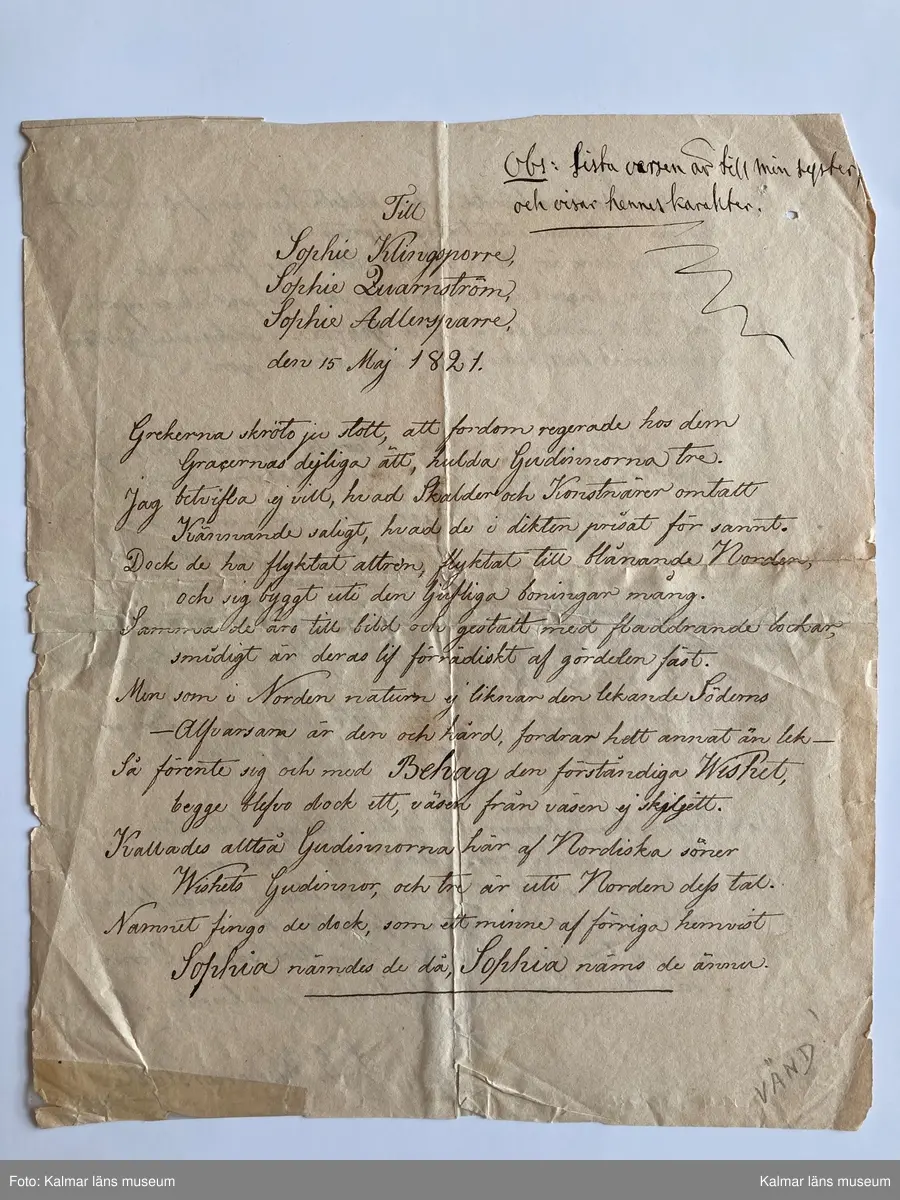 Obs: Sista versen är till min syster,
och visar hennes karakter.
Till
Sophie Klingsporre,
Sophie Quarnström,
Sophie Adlersparre,
den 15 Maj 1821.
Grekerna skröto ju stolt, att fordom regerade hos dem
Gracernas dejliga ätt, hulda Gudinnorna tre.
Jag betvifla ej vill, hvad Skalder och Konstnärer omtalt
Kännande saligt, hvad de i dikten prisat för sannt.
Dock de ha flyktat allren, flyktat till blånande Norden,
och sig byggt uti den ljufliga boningar mång.
Samma de äro till bild och gestalt med fladdrande lockar,
smidigt är deras lif förrädiskt af gördelen fäst.
Men som i Norden naturn ej liknar den lekande Söderns
—Allvarsam är den och hård, fordrar helt annat än lek—
Så förente sig och med Behag den förståndiga Wishet,
begge blefvo dock ett, väsen från väsen ej skjljett.
Kallades alltså Gudinnorna här af Nordiska söner
Wishets Gudinnor, och tre är uti Norden dess tal.
Namnet fingo de dock, som ett minne af förriga hemvist
Sophia nämdes de då, Sophia näms de ännu.
VÄND!
Foto: Kalmar läns museum
Kalmar läns museum